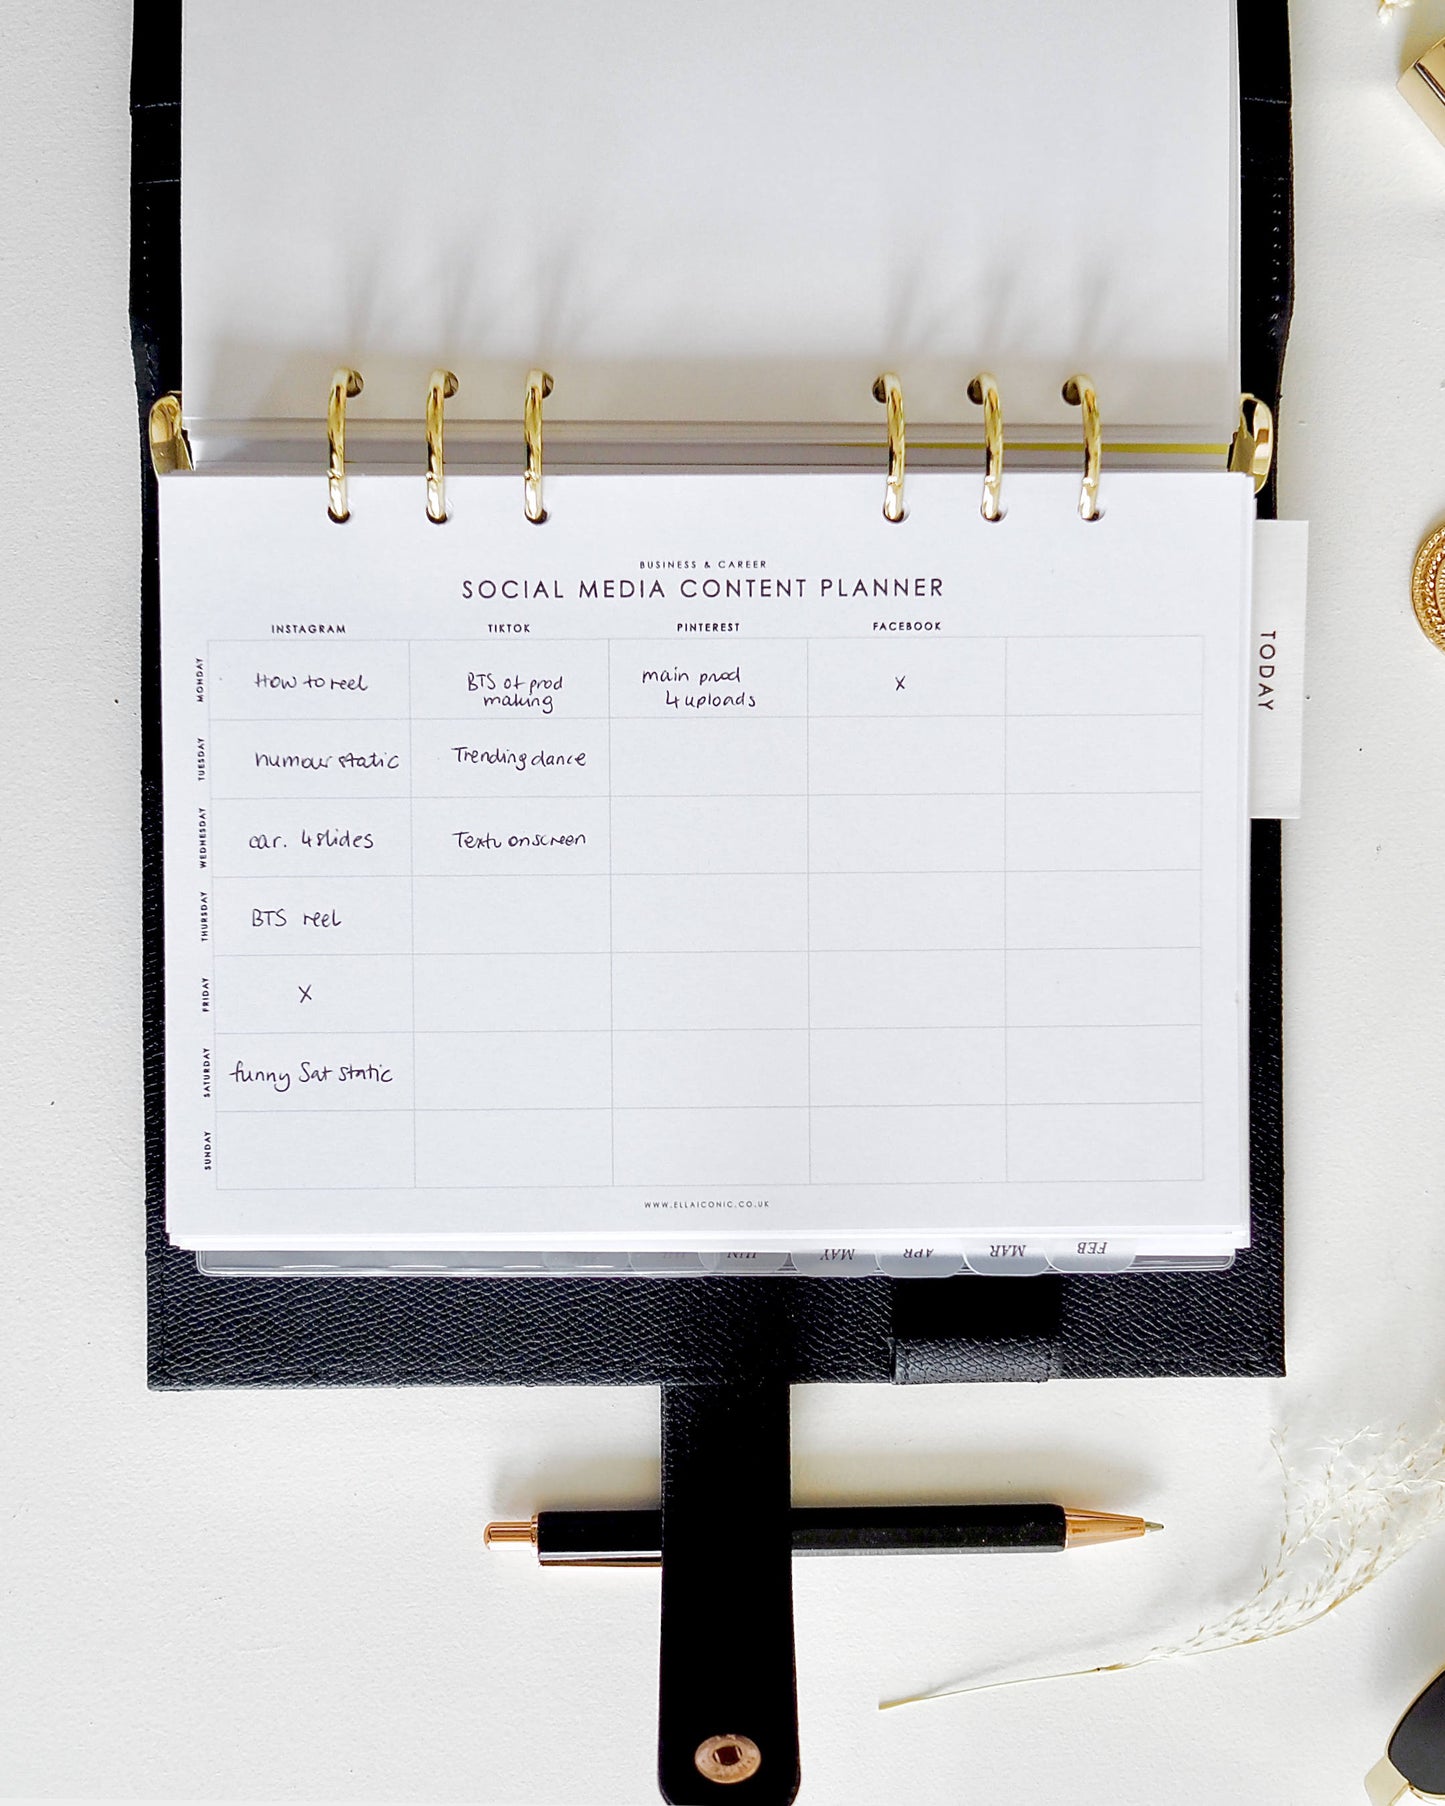 BUSINESS & CAREER
SOCIAL MEDIA CONTENT PLANNER
INSTAGRAM TIKTOK PINTEREST FACEBOOK
MONDAY
How to reel
BTS of prod
making
main prod
4 uploads
X
TUESDAY
humour static
Trending dance
WEDNESDAY
car. 4 slides
Text onscreen
THURSDAY
BTS reel
FRIDAY
X
SATURDAY
funny Sat static
SUNDAY
WWW.ELLAICONIC.CO.UK
TODAY
JUN MAY APR MAR FEB